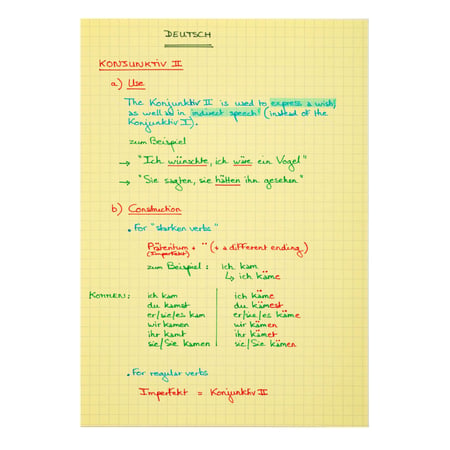 DEUTSCH
KONJUNKTIV II
a) Use
The Konjunktiv II is used to express a wish,
as well as in "indirect speech" (instead of the
Konjunktiv I).
zum Beispiel
→ "Ich wünschte, ich wäre ein Vogel"
→ "Sie sagten, sie hätten ihn gesehen"
b) Construction
• For "starken verbs"
Präteritum + ¨ (+ a different ending)
(Imperfekt)
zum Beispiel : ich kam
↳ ich käme
KOMMEN: ich kam | ich käme
du kamst | du kämest
er/sie/es kam | er/sie/es käme
wir kamen | wir kämen
ihr kamt | ihr kämet
sie/Sie kamen | sie/Sie kämen
• For regular verbs
Imperfekt = Konjunktiv II